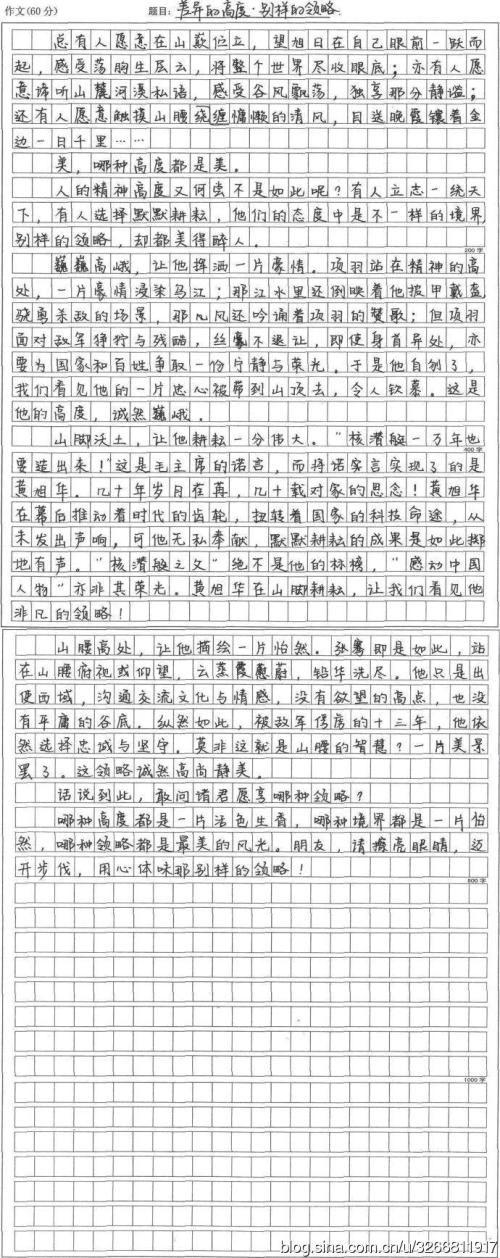 作文(60分) 题目：差异的高度·别样的领略.
总有人愿意在山巅位立，望旭日在自己眼前一跃而
起，感受荡胸生层云，将整个世界尽收眼底；亦有人愿
意谛听山麓河溪私语，感受谷风飘荡，独享那分静谧；
还有人愿意触摸山腰绕缠慵懒的清风，目送晚霞镶着金
边一日千里……
美，哪种高度都是美。
人的精神高度又何尝不是如此呢？有人立志一统天
下，有人选择默默耕耘，他们的态度中是不一样的境界，
别样的领略，却都美得醉人。
200字
巍巍高峨，让他挥洒一片豪情。项羽站在精神的高
处，一片豪情浸染乌江；那江水里还倒映着他披甲戴盔
骁勇杀敌的场景，那风还吟诵着项羽的赞歌；但项羽
面对敌军狰狞与残酷，丝毫不退让，即使身首异处，亦
要为国家和百姓争取一份宁静与荣光。于是他自刎了，
我们看见他的一片忠心被带到山顶去，令人钦慕。这是
他的高度，诚然巍峨。
山脚沃土，让他耕耘一分伟大。“核潜艇一万年也
400字
要造出来！”这是毛主席的诺言，而将诺言实现了的是
黄旭华。几十年岁月在苒，几十载对家的思念！黄旭华
在幕后推动着时代的齿轮，扭转着国家的科技命途，从
未发出声响，可他无私奉献，默默耕耘的成果是如此掷
地有声。“核潜艇之父”绝不是他的标榜，“感动中国
人物”亦非其荣光。黄旭华在山脚耕耘，让我们看见他
非凡的领略！
山腰高处，让他描绘一片怡然。张骞即是如此，站
在山腰俯视或仰望，云蒸霞蔚，铅华洗尽。他只是出
使西域，沟通交流文化与情感，没有欲望的高点，也没
有平庸的谷底。纵然如此，被敌军俘虏的十三年，他依
然选择忠诚与坚守。莫非这就是山腰的智慧？一片美景
罢了。这领略诚然高尚静美。
话说到此，敢问诸君愿享哪种领略？
哪种高度都是一片活色生香，哪种境界都是一片怡
然，哪种领略都是最美的风光。朋友，请擦亮眼睛，迈
开步伐，用心体味那别样的领略！
800字
1000字
blog.sina.com.cn/u/3266811917